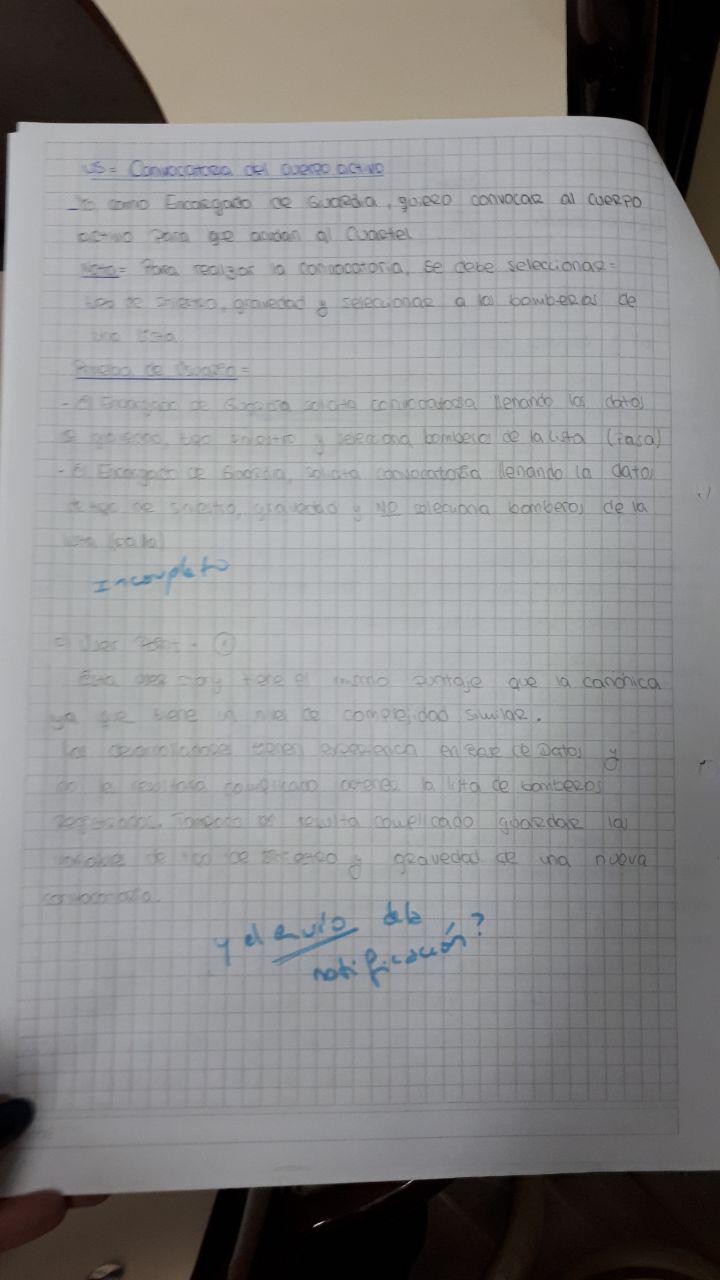 US = Convocatoria del cuerpo activo
Yo como Encargado de Guardia, quiero convocar al cuerpo
activo para que acudan al Cuartel
Nota = Para realizar la convocatoria, se debe seleccionar =
tipo de siniestro, gravedad y seleccionar a los bomberos de
una lista
Prueba de Usuario =
- El Encargado de Guardia solicita convocatoria llenando los datos
tipo siniestro y selecciona bomberos de la lista (Pasa)
- El Encargado de Guardia, solicita convocatoria llenando los datos
de tipo de siniestro, gravedad y NO selecciona bomberos de la
lista (falla)
Incompleto
c) User Story - 1
Esta user story tiene el mismo puntaje que la canónica
ya que tiene un nivel de complejidad similar.
Los desarrolladores tienen experiencia en Base de Datos y
no le resultara complicado obtener la lista de bomberos
Tampoco resulta complicado guardar las
variables de tipo de siniestro y gravedad de una nueva
convocatoria.
y el envío de la
notificación?